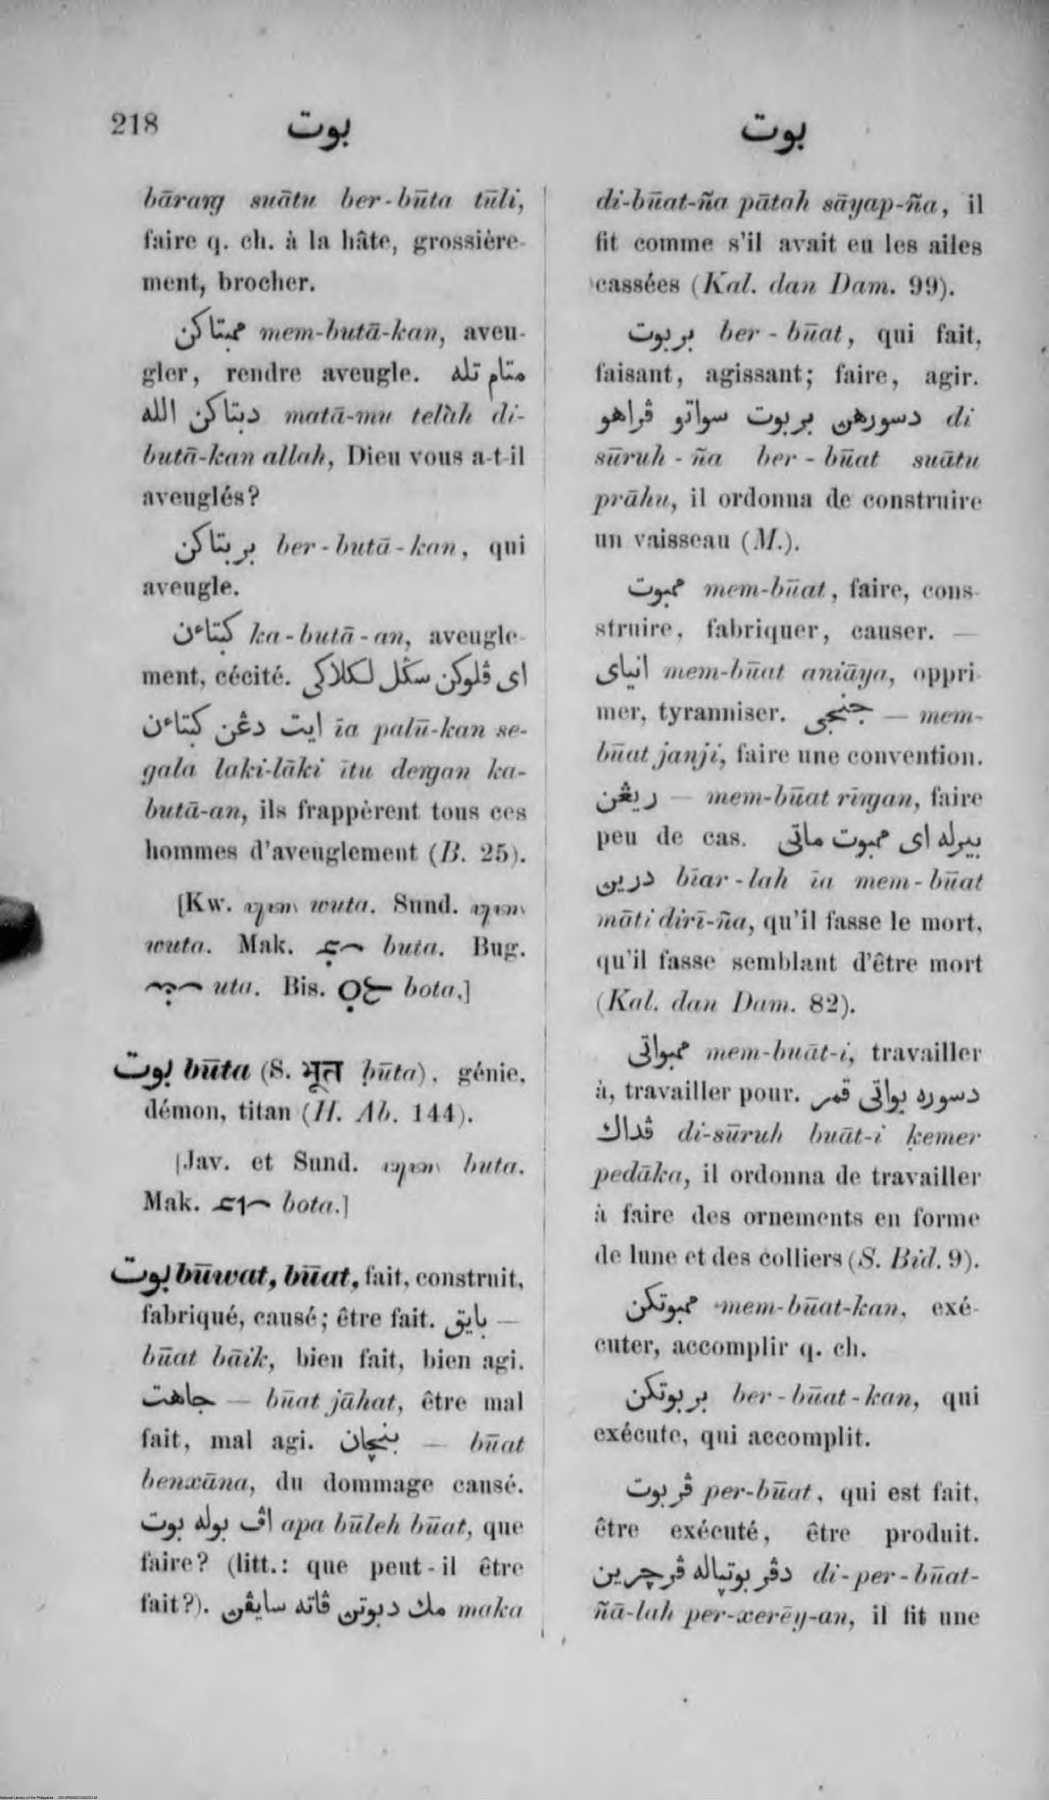 218 بوت بوت
bārang suātu ber-būta tūli,
faire q. ch. à la hâte, grossière-
ment, brocher.
ممبتاكن mem-butā-kan, aveu-
gler, rendre aveugle. متام تله
دبتاكن الله matā-mu telàh di-
butā-kan allah, Dieu vous a-t-il
aveuglés?
بربتاكن ber-butā-kan, qui
aveugle.
كبتاءن ka-butā-an, aveugle-
ment, cécité. اى ڤلوكن سڬل لكلاكى
ايت دڠن كبتاءن īa palū-kan se-
gala laki-lāki ītu dengan ka-
butā-an, ils frappèrent tous ces
hommes d'aveuglement (B. 25).
[Kw. wuta. Sund.
wuta. Mak. buta. Bug.
uta. Bis. bota.]
بوت būta (S. भूत ḅūta), génie,
démon, titan (H. Ab. 144).
[Jav. et Sund. buta.
Mak. bota.]
بوت būwat, būat, fait, construit,
fabriqué, causé; être fait. بايق —
būat bāik, bien fait, bien agi.
جاهت — būat jāhat, être mal
fait, mal agi. بنچان — būat
benxāna, du dommage causé.
اڤ بوله بوت apa būleh būat, que
faire? (litt.: que peut-il être
fait?). مك دبوتن ڤاته سايڤن maka
di-būat-ña pātah sāyap-ña, il
fit comme s'il avait eu les ailes
cassées (Kal. dan Dam. 99).
بربوت ber-būat, qui fait,
faisant, agissant; faire, agir.
دسورهن بربوت سواتو ڤراهو di
sūruh-ña ber-būat suātu
prāhu, il ordonna de construire
un vaisseau (M.).
ممبوت mem-būat, faire, cons-
struire, fabriquer, causer. —
انياى mem-būat aniāya, oppri-
mer, tyranniser. جنجى — mem-
būat janji, faire une convention.
ريڠن — mem-būat rīngan, faire
peu de cas. بيرله اى ممبوت ماتى
درين bīar-lah īa mem-būat
māti dirī-ña, qu'il fasse le mort,
qu'il fasse semblant d'être mort
(Kal. dan Dam. 82).
ممبواتى mem-buāt-i, travailler
à, travailler pour. دسوره بواتى قمر
ڤداك di-sūruh buāt-i ḳemer
pedāka, il ordonna de travailler
à faire des ornements en forme
de lune et des colliers (S. Bid. 9).
ممبوتكن mem-būat-kan, exé-
cuter, accomplir q. ch.
بربوتكن ber-būat-kan, qui
exécute, qui accomplit.
ڤربوت per-būat, qui est fait,
être exécuté, être produit.
دڤربوتڽاله ڤرچرين di-per-būat-
ñā-lah per-xerēy-an, il fit une